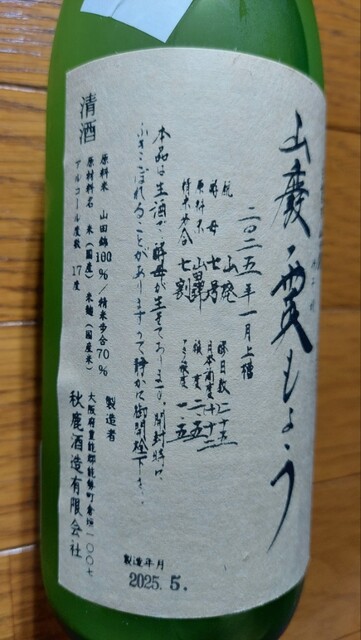 山廃・霙もよう
二〇二五年一月上槽
酛 山廃
酵母 七号
原料米 山田錦
精米歩合 七割
醪日数 二十五
日本酒度 十十二
酸度 二・五
アミノ酸度 一・五
本品は生酒で、酵母が生きております。開封時に
ふきこぼれることがありますので静かに御開栓下さい。
清酒
原料米 山田錦100%/精米歩合70%
原材料名 米(国産)米麹(国産米)
アルコール度数 17度
製造者
大阪府豊能郡能勢町倉垣一〇〇七
秋鹿酒造有限会社
製造年月
2025. 5.